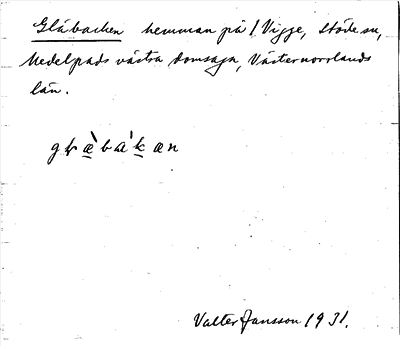 Gläbacken hemman på 1 Vigge, Stöde sn,
Medelpads västra domsaga, Västernorrlands
län.
Valter Jansson 1931.